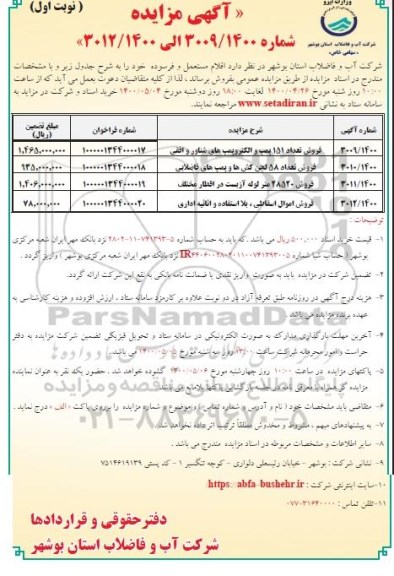 ( نوبت اول )
وزارت نیرو
شرکت آب و فاضلاب استان بوشهر
« آگهی مزایده
شماره ۳۰۰۹/۱۴۰۰ الی ۳۰۱۲/۱۴۰۰»
شرکت آب و فاضلاب استان بوشهر در نظر دارد اقلام مستعمل و فرسوده خود را به شرح جدول زیر و با مشخصات
مندرج در اسناد مزایده از طریق مزایده عمومی بفروش برساند . لذا از کلیه متقاضیان دعوت بعمل می آید که از ساعت
۱۰:۰۰ روز شنبه مورخ ۱۴۰۰/۰۴/۲۶ لغایت ۱۸:۰۰ روز دوشنبه مورخ ۱۴۰۰/۰۵/۰۴ خرید اسناد و شرکت در مزایده به
سامانه ستاد به نشانی www.setadiran.ir مراجعه نمایند.
شماره آگهی شرح مزایده شماره فراخوان مبلغ تضمین (ریال)
۳۰۰۹/۱۴۰۰ فروش تعداد ۱۵۱ پمپ و الکتروپمپ های شناور و افقی ۱۰۰۰۰۰۱۳۴۴۰۰۰۰۱۷ ۱,۴۶۵,۰۰۰,۰۰۰
۳۰۱۰/۱۴۰۰ فروش تعداد ۵۸ لجن کش ها و پمپ های فاضلابی ۱۰۰۰۰۰۱۳۴۴۰۰۰۰۱۸ ۹۳۵,۰۰۰,۰۰۰
۳۰۱۱/۱۴۰۰ فروش ۲۸۵۲۰ متر لوله آزبست در اقطار مختلف ۱۰۰۰۰۰۱۳۴۴۰۰۰۰۱۹ ۱,۴۰۶,۰۰۰,۰۰۰
۳۰۱۲/۱۴۰۰ فروش اموال اسقاطی ، بلا استفاده و اثاثیه اداری ۱۰۰۰۰۰۱۳۴۴۰۰۰۰۲۰ ۷۸,۰۰۰,۰۰۰
توضیحات :
۱- قیمت خرید اسناد ۵۰۰,۰۰۰ ریال می باشد . که باید به حساب شماره نزد بانک مهر ایران شعبه مرکزی
بوشهر ( حساب شبا شماره نزد بانک مهر ایران شعبه مرکزی بوشهر ) واریز گردد .
۲- تضمین شرکت در مزایده باید به صورت واریز نقدی یا ضمانت نامه بانکی به نفع این شرکت ارائه گردد.
۳- هزینه درج آگهی در روزنامه طبق تعرفه آزاد در دو نوبت علاوه بر کارمزد سامانه ستاد ، ارزش افزوده و هزینه کارشناسی به
عهده برنده مزایده می باشد.
۴- آخرین مهلت بارگذاری مدارک به صورت الکترونیکی در سامانه ستاد و تحویل فیزیکی تضمین شرکت مزایده به دفتر
حراست و امور محرمانه شرکت ساعت ۱۳:۰۰ روز سه شنبه مورخ ۱۴۰۰/۰۵/۰۵ می باشد.
۵- پاکتهای مزایده در ساعت ۱۰:۰۰ روز چهارشنبه مورخ ۱۴۰۰/۰۵/۰۶ گشوده خواهد شد . حضور یک نفر به عنوان نماینده
۶- متقاضی باید مشخصات خود ( نام و آدرس و شماره تماس ) و موضوع و شماره مزایده را برروی پاکت «الف» درج نماید .
۷- به پیشنهادهای مبهم ، مشروط و مخدوش مطلقا ترتیب اثر داده نخواهد شد.
۸- سایر اطلاعات و مشخصات مربوطه در اسناد مزایده مندرج می باشد .
۹- نشانی شرکت : بوشهر - خیابان رئیسعلی دلواری - کوچه تنگسیر ۱ - کد پستی ۷۵۱۴۶۱۹۱۳۹
۱۰- سایت اینترنتی شرکت : https: abfa-bushehr.ir
۱۱- تلفن تماس : ۰۷۷-۳۱۶۴۰۰۰۰
دفترحقوقی و قراردادها
شرکت آب و فاضلاب استان بوشهر
ParsNamadData